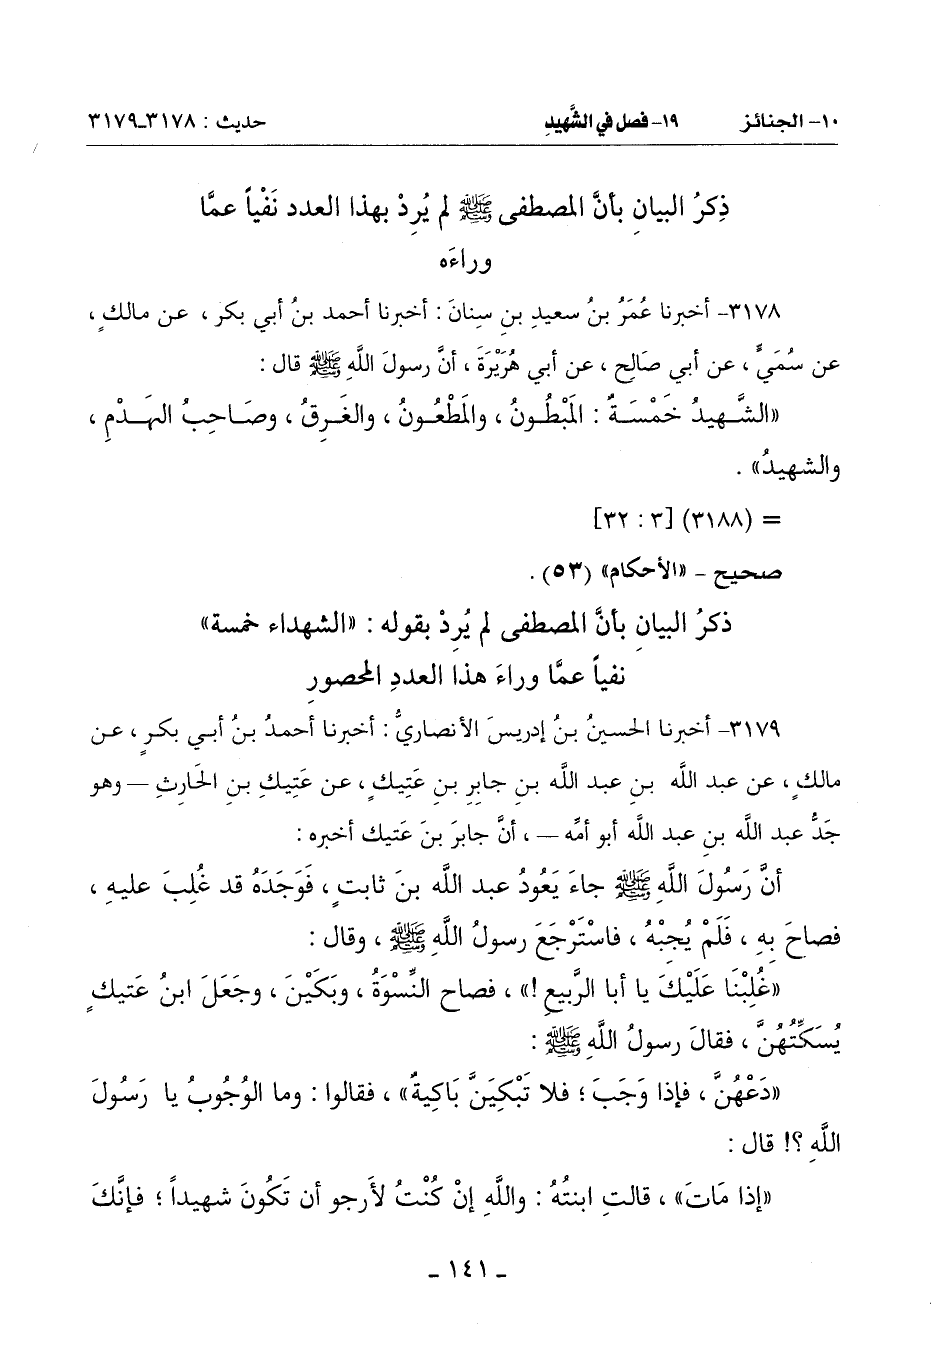 ١٠- الجنائز ١٩- فصل في الشَّهيدِ حديث : ٣١٧٨-٣١٧٩
ذِكرُ البيانِ بأنَّ المصطفى ﷺ لم يُرِدْ بهذا العدد نَفْياً عمَّا
وراءَه
٣١٧٨- أخبرنا عُمَرُ بنُ سعيدِ بنِ سِنانَ : أخبرنا أحمد بنُ أبي بكر ، عن مالكٍ ،
عن سُمَيٍّ ، عن أبي صَالِحٍ ، عن أبي هُرَيْرَةَ ، أنَّ رسولَ اللَّهِ ﷺ قال :
«الشَّهيدُ خَمْسَةٌ : المَبْطُونُ ، والمَطْعُونُ ، والغَرِقُ ، وصَاحِبُ الهَدْمِ ،
والشهيدُ» .
= (٣١٨٨) [٣ : ٣٢]
صحيح - «الأحكام» (٥٣) .
ذكرُ البيانِ بأنَّ المصطفى لم يُرِدْ بقوله : «الشهداء خمسة»
نفياً عمَّا وراءَ هذا العددِ المحصورِ
٣١٧٩- أخبرنا الحسينُ بنُ إدريسَ الأنصاريُّ : أخبرنا أحمدُ بنُ أبي بكرٍ ، عن
مالكٍ ، عن عبد اللَّه بنِ عبد اللَّه بنِ جابرِ بنِ عَتِيكٍ ، عن عَتِيكِ بنِ الحَارثِ — وهو
جَدُّ عبد اللَّه بنِ عبد اللَّه أبو أمِّه — ، أنَّ جابرَ بنَ عَتيك أخبره :
أنَّ رَسُولَ اللَّهِ ﷺ جاءَ يَعُودُ عبد اللَّه بنَ ثابتٍ ، فَوَجَدَهُ قد غُلِبَ عليهِ ،
فصاحَ بِهِ ، فَلَمْ يُجِبْهُ ، فاسْتَرْجَعَ رسولُ اللَّهِ ﷺ ، وقال :
«غُلِبْنَا عَلَيْكَ يا أبا الرَّبيعِ !» ، فصاح النِّسْوَةُ ، وبَكَيْنَ ، وجَعَلَ ابنُ عَتيكٍ
يُسَكِّتُهُنَّ ، فقالَ رسولُ اللَّهِ ﷺ :
«دَعْهُنَّ ، فإذا وَجَبَ ؛ فلا تَبْكِيَنَّ بَاكِيةٌ» ، فقالوا : وما الوُجُوبُ يا رَسُولَ
اللَّهِ ؟! قال :
«إذا مَاتَ» ، قالتِ ابنتُهُ : واللَّهِ إنْ كُنْتُ لأَرجو أن تَكُونَ شهيداً ؛ فإنَّكَ
- ١٤١ -